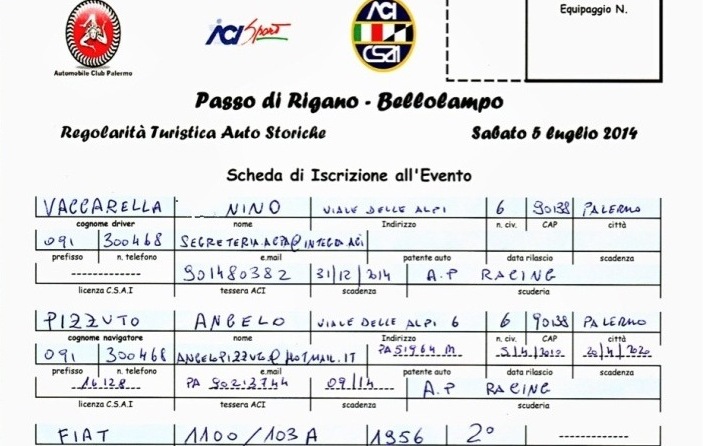 Equipaggio N.
Automobile Club Palermo
ACI Sport
ACI
CSAI
Passo di Rigano - Bellolampo
Regolarità Turistica Auto Storiche Sabato 5 luglio 2014
Scheda di Iscrizione all'Evento
VACCARELLA NINO VIALE DELLE ALPI 6 90138 PALERMO
cognome driver nome Indirizzo n. civ. CAP città
091 300468
prefisso n. telefono e.mail patente auto data rilascio scadenza
------------- 901480382 31/12/2014 A.P RACING
licenza C.S.A.I tessera ACI scadenza scuderia
PIZZUTO ANGELO VIALE DELLE ALPI 6 6 90138 PALERMO
cognome navigatore nome Indirizzo n. civ. CAP città
091 300468 ANGELOPIZZUTO@HOTMAIL.IT 20/4/2020
prefisso n. telefono e.mail patente auto data rilascio scadenza
16128 09/14 A.P RACING
licenza C.S.A.I tessera ACI scadenza scuderia
FIAT 1100/103A 1956 2° -------------